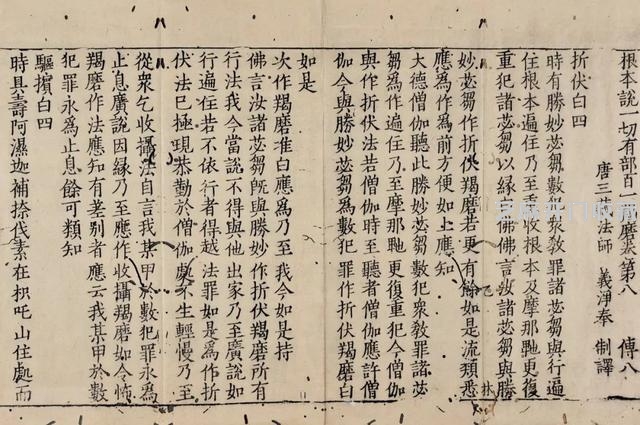 根本說一切有部百一羯磨卷第八 傳八
唐三藏法師 義淨奉 制譯
折伏白四
時有勝妙苾芻數犯衆教罪諸苾芻與行遍
住根本遍住乃至重收根本及摩那卑更復
重犯諸苾芻以緣白佛佛言汝諸苾芻與勝
妙苾芻作折伏羯磨若更有餘如是流類悉
應爲作爲前方便如上應知
大德僧伽聽此勝妙苾芻數犯衆教罪諸苾
芻爲作遍住乃至摩那卑更復重犯今僧伽
與作折伏法若僧伽時至聽者僧伽應許僧
伽今與勝妙苾芻爲數犯罪作折伏羯磨白
如是
次作羯磨准白應爲乃至我今如是持
佛言汝諸苾芻旣與勝妙作折伏羯磨所有
行法我今當說不得與他出家乃至廣說如
行遍住若不依行者得越法罪如是爲作折
伏法已極現恭勤於僧伽處不生輕慢乃至
從衆乞收攝法自言我某甲於數犯罪永爲
止息廣說因緣乃至應作收攝羯磨如令怖
羯磨作法應知有差別者應云我某甲於數
犯罪永爲止息餘可類知
驅擯白四
時具壽阿濕迦補捺伐素在枳吒山住處而
林